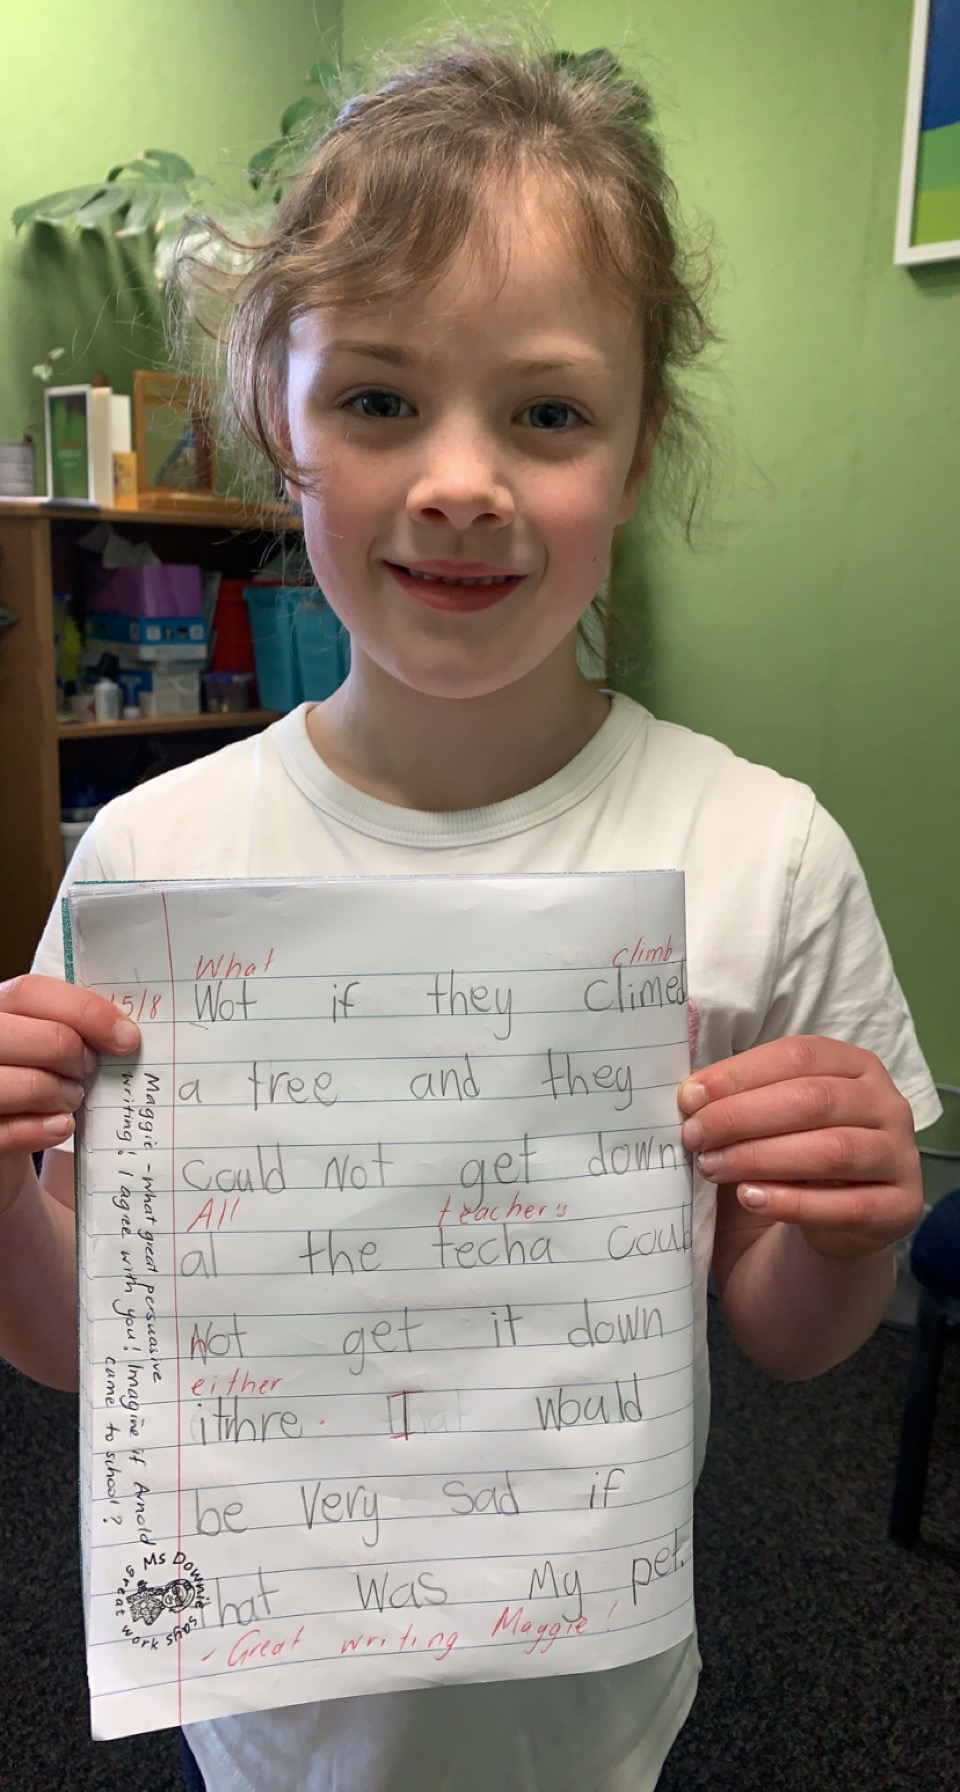 What climb
15/8 Wot if they climed
a tree and they
could Not get down
All teacher's
al the techa could
Not get it down
either
ithre. I would
be very sad if
that was My pet.
- Great writing Maggie!
Maggie - what great persuasive
writing! I agree with you! Imagine if Arnold
came to school?
Ms Downie says
great work